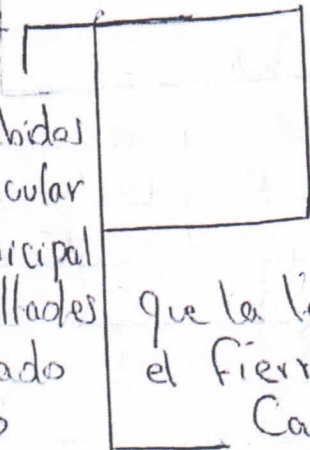 bidos
cular
icipal
llados
ado
o
que la l
el fierr
Ca